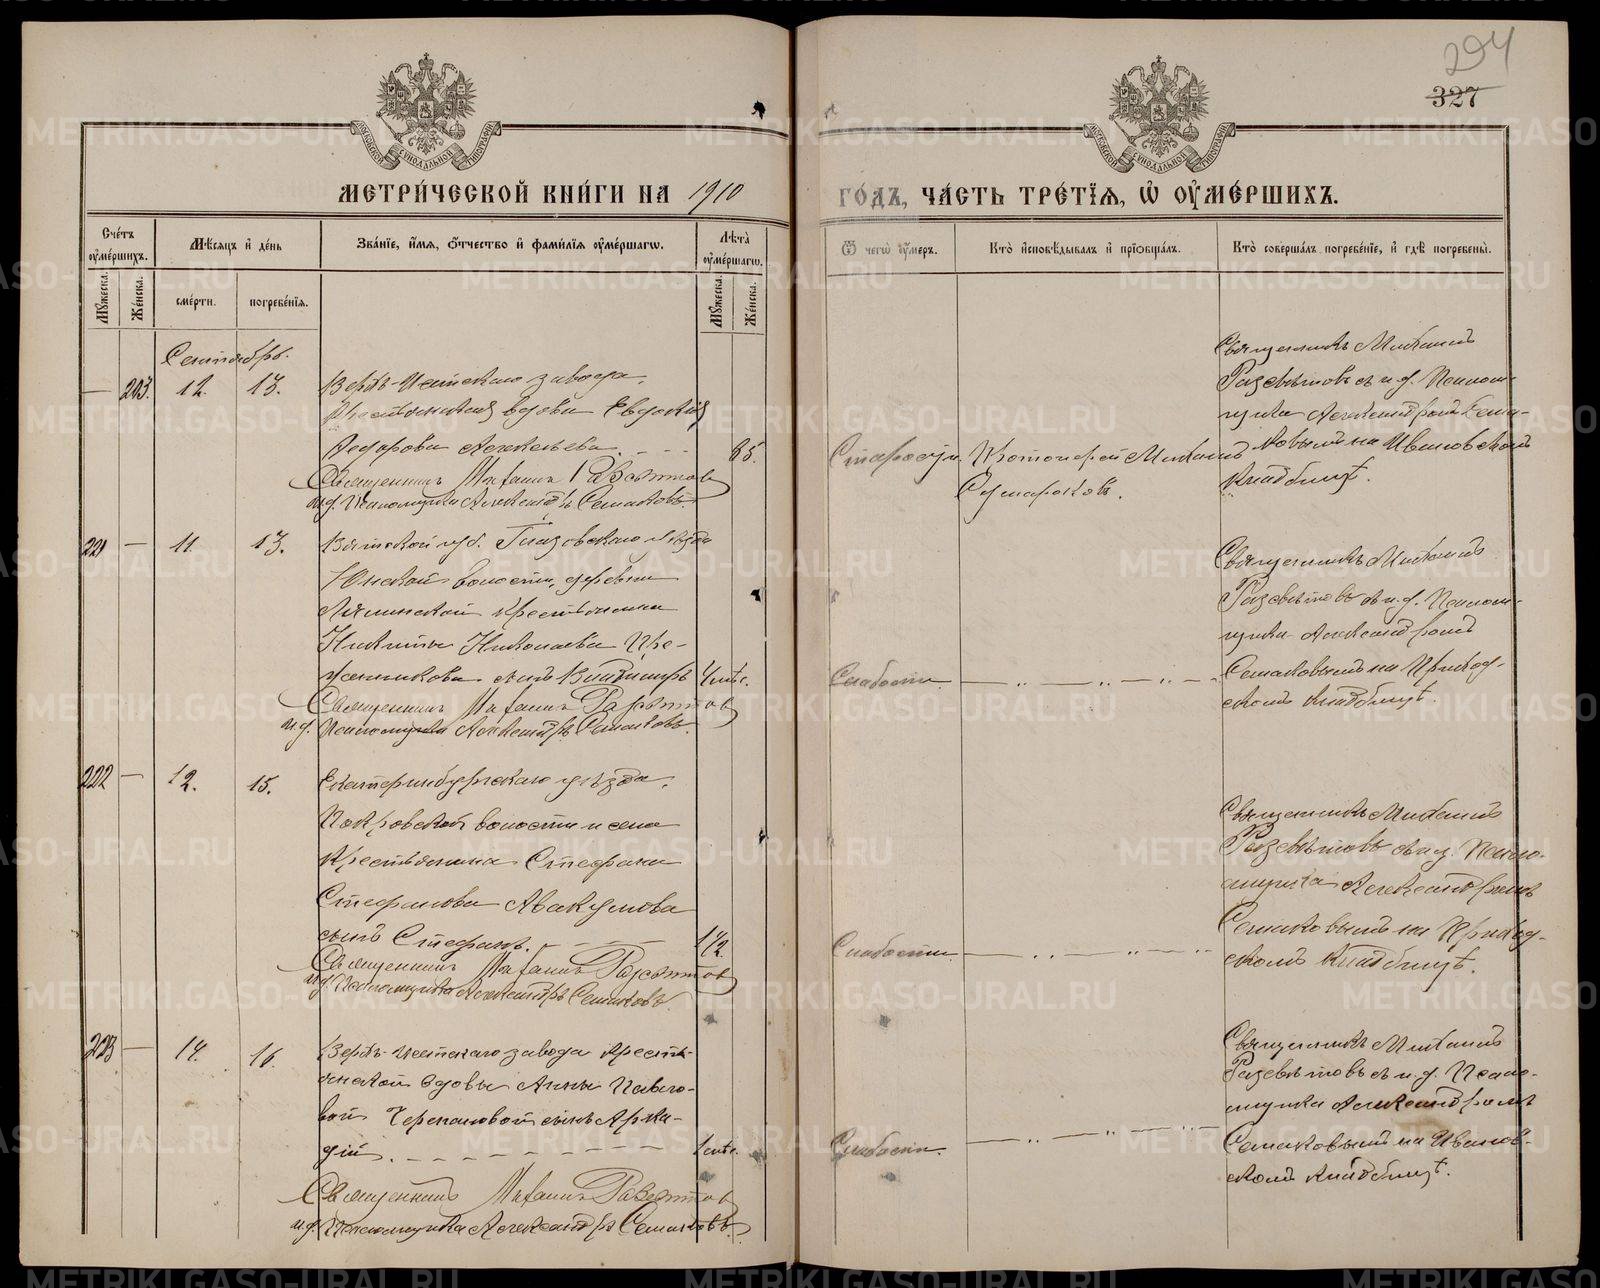 294
327
МЕТРИ́ЧЕСКОЙ КНИ́ГИ НА 1910
ГО́ДЪ, ЧА́СТЬ ТРЕ́ТІѦ, Ѡ҆ ОУ҆МЕ́РШИХЪ.
Сче́тъ оумéршихъ.
Мꙋжеска.
Же́нска.
Мѣсяцъ и де́нь
сме́рти.
погребе́нїѧ.
Зва́нїе, и́мѧ, ѻ҆́тчество и҆ фами́лїѧ оу҆ме́ршагѡ.
Лѣ́та оу҆ме́ршагѡ.
Мꙋжеска.
Же́нска.
Ѿ чегѡ̀ оу҆́меръ.
Кто̀ и҆сповѣ́дывалъ и҆ прїѡбща́лъ.
Кто̀ соверша́лъ погребе́нїе, и҆ гдѣ̀ погребены̀.
Сентябрь.
— 203. 12. 13. Верхъ-Исетскаго завода,
Крестьянская вдова Евдокія
Ѳедорова Алексѣева 85.
Священникъ Михаилъ Разсвѣтовъ
и.д. Псаломщика Александръ Семаковъ.
Старости. Протоіерей Михаилъ
Сушарововъ.
Священникъ Михаилъ
Разсвѣтовъ съ и.д. Псалом-
щика Александромъ Сема-
ковымъ на Ивановскомъ
кладбищѣ.
221 — 11. 13. Вятской губ. Глазовскаго уѣзда
Юнской волости, деревни
крестьянина
Никиты Николаева
сынъ Владиміръ 4 мѣс.
Священникъ Михаилъ Разсвѣтовъ
и.д. Псаломщика Александръ Семаковъ.
Слабости.
Священникъ Михаилъ
Разсвѣтовъ съ и.д. Псалом-
щика Александромъ
Семаковымъ на Приход-
скомъ кладбищѣ.
222 — 12. 15. Екатеринбургскаго уѣзда,
Покровской волости и села
Крестьянина Стефана
Стефанова Авакумова
сынъ Стефанъ. 1/2.
Священникъ Михаилъ Разсвѣтовъ
и.д. Псаломщика Александръ Семаковъ.
Слабости.
Священникъ Михаилъ
Разсвѣтовъ съ и.д. Псало-
мщика Александромъ
Семаковымъ на Приход-
скомъ кладбищѣ.
223 — 14. 16. Верхъ-Исетскаго завода Кресть-
янской вдовы Анны Павло-
вой Черепановой сынъ Арка-
дій. 1 мѣс.
Священникъ Михаилъ Разсвѣтовъ
и.д. Псаломщика Александръ Семаковъ.
Слабости.
Священникъ Михаилъ
Разсвѣтовъ съ и.д. Псало-
мщика Александромъ
Семаковымъ на Иванов-
скомъ кладбищѣ.
METRIKI.GASO-URAL.RU